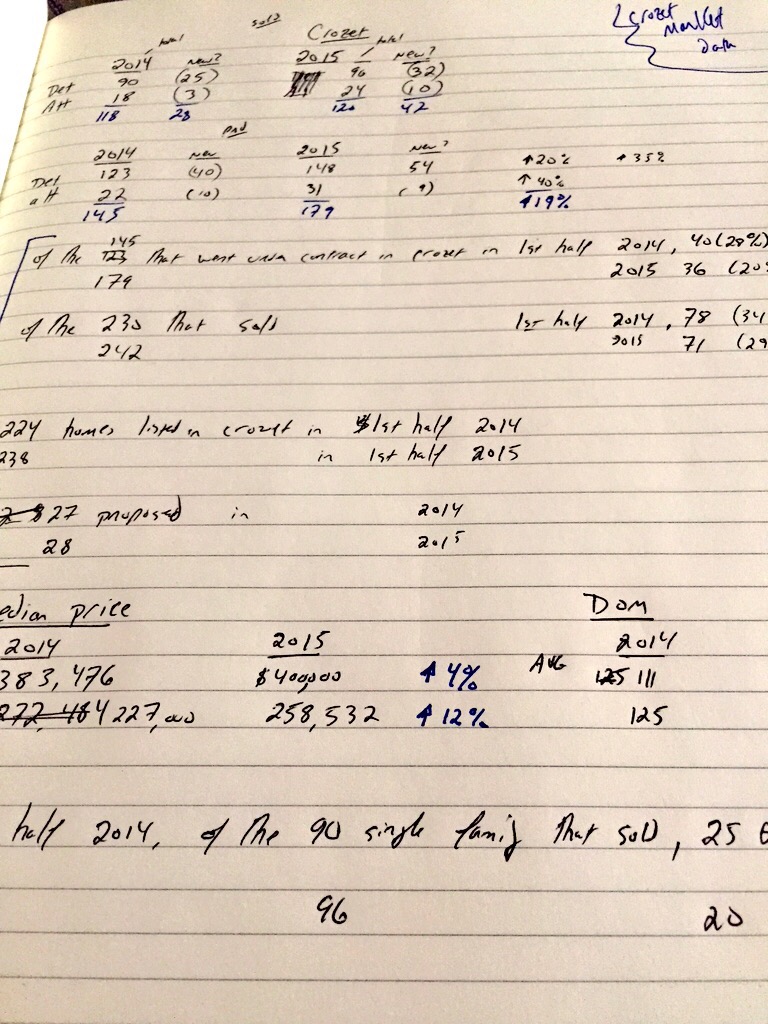 { Crozet Market Data
sold Crozet
total total
2014 New? 2015 New?
Det 90 (25) 96 (32)
Att 18 (3) 24 (10)
118 28 120 42
pnd
2014 New 2015 New?
Det 123 (40) 148 54 ↑20% ↑35%
att 22 (10) 31 (9) ↑40%
145 179 ↑19%
145
of the 123 that went under contract in crozet in 1st half 2014, 40 (28%)
179 2015 36 (20%
of the 230 that sold 1st half 2014, 78 (34
242 2015 71 (29
224 homes listed in crozet in 1st half 2014
238 in 1st half 2015
27 proposed in 2014
28 2015
edian price DOM
2014 2015 2014
383,476 $400,000 ↑4% AVG 125 111
272,484 227,000 258,532 ↑12% 125
half 2014, of the 90 single family that sold, 25
96 20